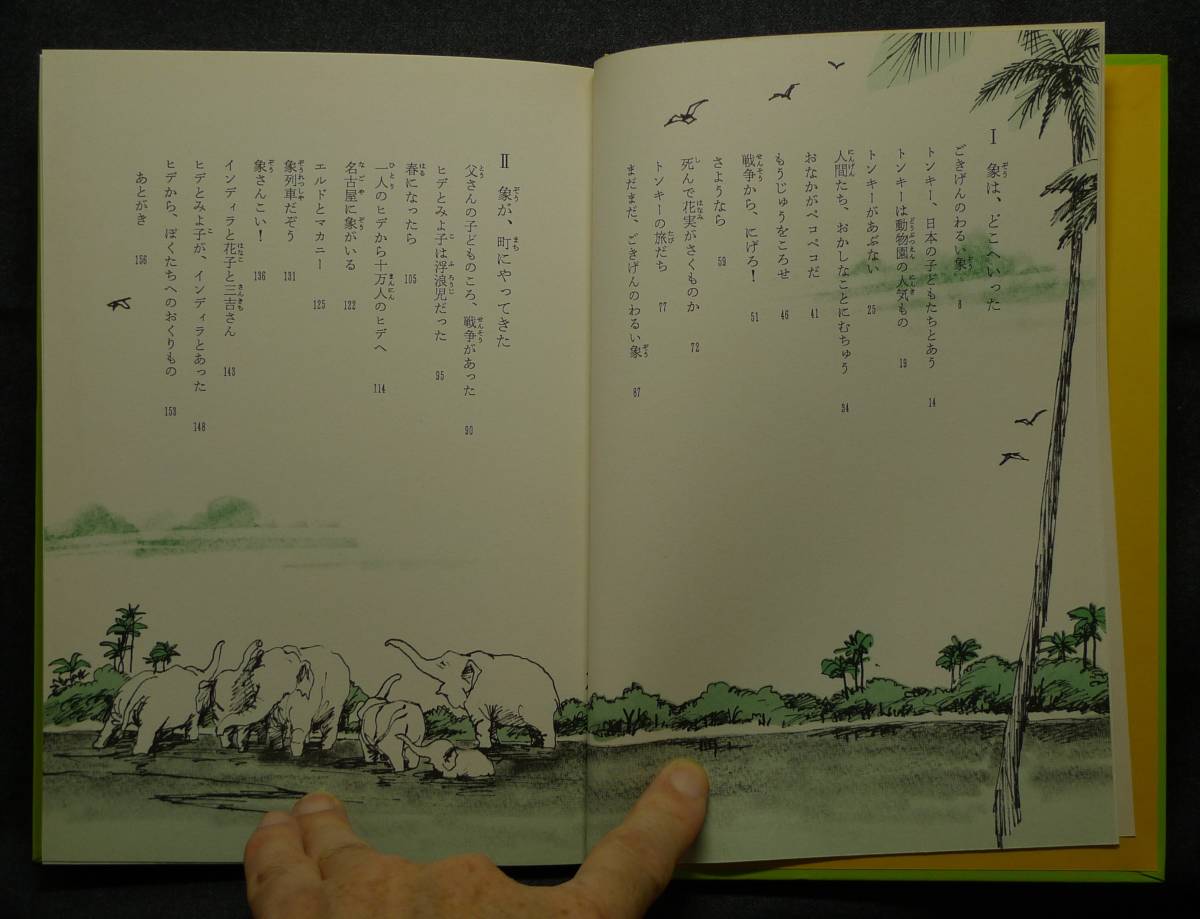 I 象は、どこへいった
ごきげんのわるい象 8
トンキー、日本の子どもたちとあう 14
トンキーは動物園の人気もの 19
トンキーがあぶない 25
人間たち、おかしなことにむちゅう 34
おなかがペコペコだ 41
もうじゅうをころせ 46
戦争から、にげろ! 51
さようなら 59
死んで花実がさくものか 72
トンキーの旅だち 77
まだまだ、ごきげんのわるい象 87
II 象が、町にやってきた
父さんの子どものころ、戦争があった 90
ヒデとみよ子は浮浪児だった 95
春になったら 105
一人のヒデから十万人のヒデへ 114
名古屋に象がいる 122
エルドとマカニー 125
象列車だぞう 131
象さんこい! 136
インディラと花子と三吉さん 143
ヒデとみよ子が、インディラとあった 148
ヒデから、ぼくたちへのおくりもの 153
あとがき 156